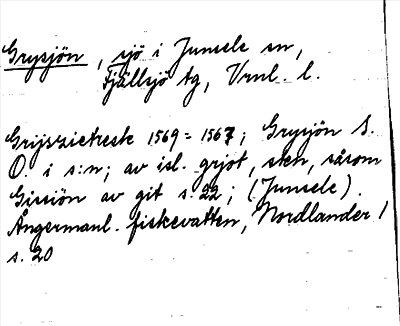 Grysjön, sjö i Junsele sn,
Fjällsjö tg, Vrnl. l.
Grijszietresk 1569 = 1567; Grysjön S.
O. i s:n; av isl. grjot, sten, såsom
Gissiön av git s. 22; (Junsele).
Ångermanl. fiskevatten, Nordlander 1
s. 20